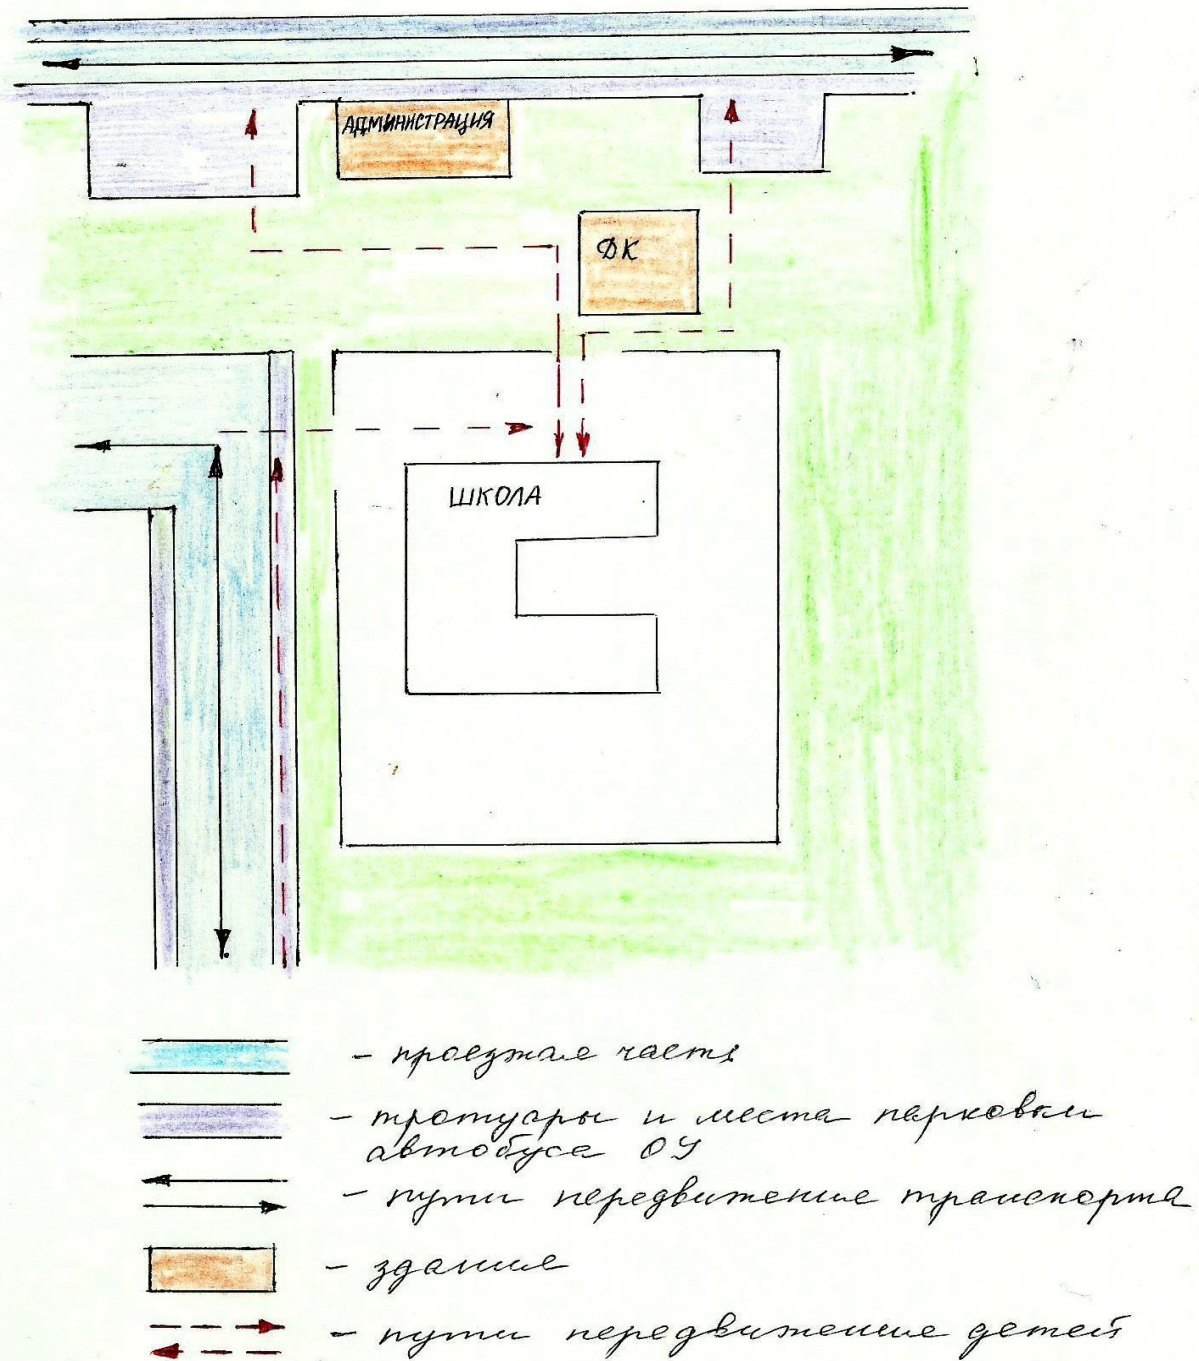 АДМИНИСТРАЦИЯ
ДК
ШКОЛА
- проезжае часть
- тротуары и места парковки
автобуса ОУ
- пути передвижение транспорта
- здание
- пути передвижение детей